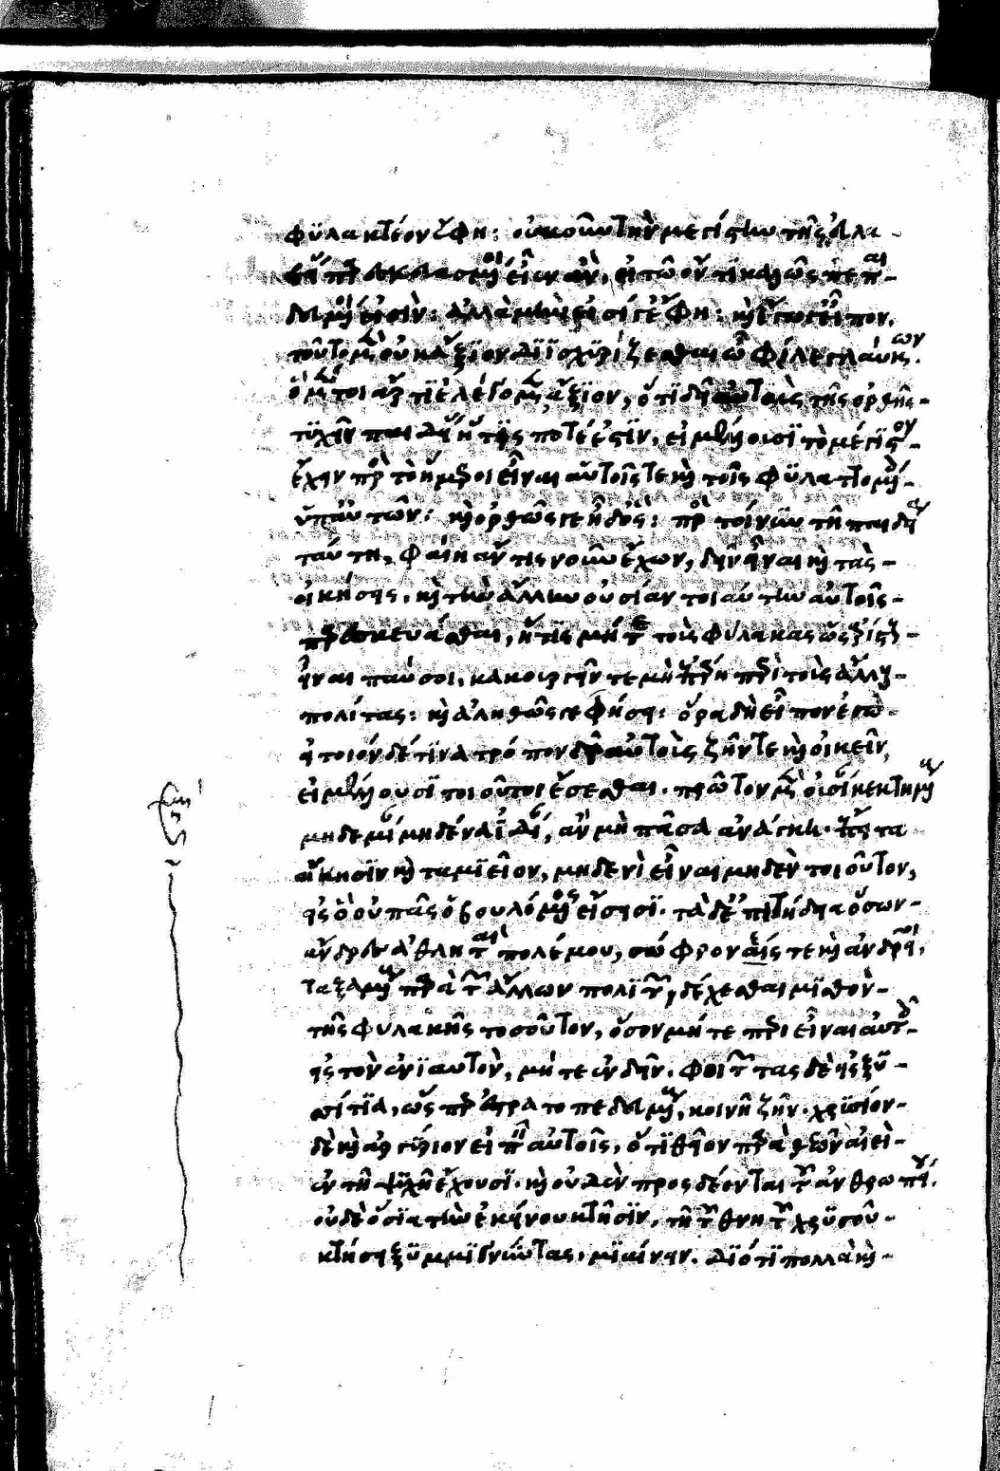 φϋλακτέον ἔφη: οὐκοῦν τὴν μεγίστην τῆς εὐλα-
βείας παρεσκευασμένοι εἶεν ἂν, εἰ τῷ ὄντι καλῶς πεπαι-
δευμένοι εἰσὶν: ἀλλὰ μὴν εἰσί γε ἔφη: καὶ ἔγωγε εἶπον,
τοῦτο μὲν οὐκ ἄξιον διϊσχϋρίζεσθαι ὦ φίλε γλαύκων.
ὃ μέντοι ἄρτι ἐλέγομεν ἄξιον, ὅτι δεῖ αὐτοὺς τῆς ὀρθῆς-
τϋχεῖν παιδείας ἥτις ποτέ ἐστϊν, εἰ μέλλουσϊ τὸ μέγιστον
ἔχειν πρὸς τὸ ἥμεροι εἶναι αὑτοῖς τε καὶ τοῖς φϋλαττομένοις-
ὑπ' αὐτῶν: καὶ ὀρθῶς γε ἦ δ' ὅς: πρὸς τοίνυν τῇ παιδείᾳ
ταύτῃ, φαίη ἄν τις νοῦν ἔχων, δεῖν εἶναι καὶ τὰς-
οἰκήσεις, καὶ τὴν ἄλλην οὐσίαν τοιαύτην αὐτοῖς-
παρεσκευάσθαι, ἥτις μήτε τοὺς φύλακας ὡς ἀρίστους-
εἶναι παύσοι, κακουργεῖν τε μὴ ἐπαρεῖ περὶ τοὺς ἄλλους-
πολίτας: καὶ ἀληθῶς γε φήσει: ὅρα δὴ εἶπον ἐγὼ-
εἰ τοιόνδε τϊνὰ τρόπον δεῖ αὐτοὺς ζῆν τε καὶ οἰκεῖν,
εἰ μέλλουσϊ τοιοῦτοι ἔσεσθαι. πρῶτον μὲν οὐσίαν κεκτημένον
μηδεμίαν μηδένα ἰδίαν, ἂν μὴ πᾶσα ἀνάγκη. ἔπειτα
οἴκησϊν καὶ ταμϊεῖον, μηδενὶ εἶναι μηδὲν τοιοῦτον,
εἰς ὃ οὐ πᾶς ὁ βουλόμενος εἴσεισϊ. τὰ δ' ἐπιτήδεια ὅσων-
ἄνδρες ἀθληταὶ πολέμου, σώφρονές τε καὶ ἀνδρεῖοι,
ταξαμένους παρὰ τῶν ἄλλων πολϊτῶν, δέχεσθαι μϊσθὸν-
τῆς φυλακῆς τοσοῦτον, ὅσον μήτε περιεῖναι αὐτοῖς-
εἰς τὸν ἐνϊαυτὸν, μήτε ἐνδεῖν. φοιτῶντας δὲ εἰς ξυσ-
σίτϊα, ὡς πὲρ ἐστρατοπεδευμένους, κοινῇ ζῆν. χρϋσίον-
δὲ καὶ ἀργύριον εἰπεῖν αὐτοῖς, ὅτϊ θεῖον παρὰ θεῶν ἀεὶ-
ἐν τῇ ψϋχῇ ἔχουσϊ. καὶ οὐδὲν προσδέονται τοῦ ἀνθρωπείου.
οὐδὲ ὅσϊα τὴν ἐκείνου κτῆσϊν, τῇ τοῦ θνητοῦ χρϋσοῦ-
κτήσει ξϋμμϊγνύντας, μϊαίνειν. διότϊ πολλὰ καὶ-